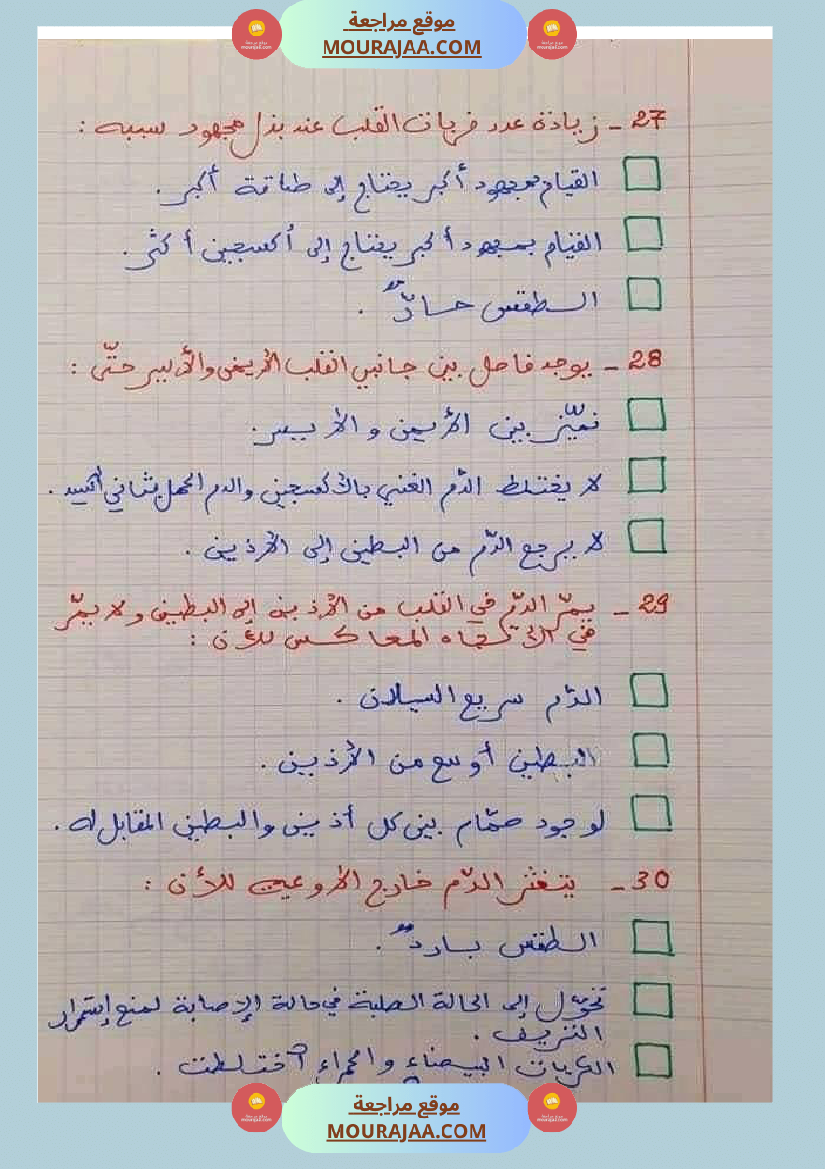 موقع مراجعة
MOURAJAA.COM
27 - زيادة عدد ضربات القلب عند بذل مجهود سببه :
القيام بمجهود أكبر يحتاج إلى طاقة أكبر .
القيام بمجهود أكبر يحتاج إلى أكسجين أكثر .
الطقس حارّ .
28 - يوجد فاصل بين جانبي القلب الأيمن والأيسر حتّى :
نميّز بين الأيمن و الأيسر .
لا يختلط الدّم الغني بالأكسجين والدم المحمل بثاني أكسيد .
لا يرجع الدّم من البطين إلى الأذين .
29 - يمرّ الدّم في القلب من الأذين إلى البطين ولا يمرّ
في الاتجاه المعاكس لأن :
الدّم سريع السيلان .
البطين أوسع من الأذين .
لوجود صمّام بين كل أذين والبطين المقابل له .
30 - يتخثر الدّم خارج الأوعية لأن :
الطقس بارد .
تحوّل إلى الحالة الصلبة في حالة الإصابة لمنع إستمرار
النزيف .
الكريات البيضاء والحمراء اختلطت .
موقع مراجعة
MOURAJAA.COM